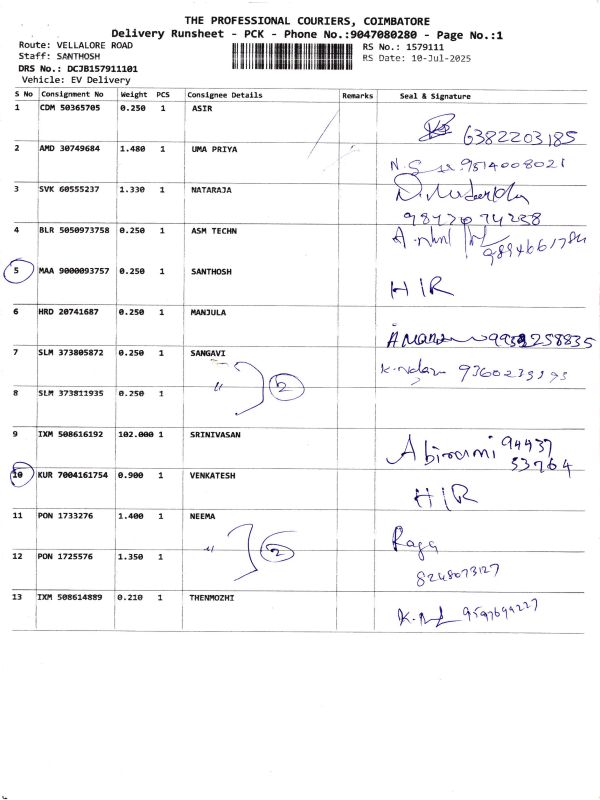 THE PROFESSIONAL COURIERS, COIMBATORE
Delivery Runsheet - PCK - Phone No.:9047080280 - Page No.:1
Route: VELLALORE ROAD
RS No.: 1579111
Staff: SANTHOSH
RS Date: 10-Jul-2025
DRS No.: DCJB157911101
Vehicle: EV Delivery
S No Consignment No Weight PCS Consignee Details Remarks Seal & Signature
1 CDM 50365705 0.250 1 ASIR
6382203185
2 AMD 30749684 1.480 1 UMA PRIYA
9514008021
3 SVK 60555237 1.330 1 NATARAJA
4 BLR 5050973758 0.250 1 ASM TECHN
5 MAA 9000093757 0.250 1 SANTHOSH
H/R
6 HRD 20741687 0.250 1 MANJULA
7 SLM 373805872 0.250 1 SANGAVI
" 2
8 SLM 373811935 0.250 1
9 IXM 508616192 102.000 1 SRINIVASAN
Abirami 94437
53764
10 KUR 7004161754 0.900 1 VENKATESH
H/R
11 PON 1733276 1.400 1 NEEMA
Raga
" 2
12 PON 1725576 1.350 1
8248073127
13 IXM 508614889 0.210 1 THENMOZHI
9597699227